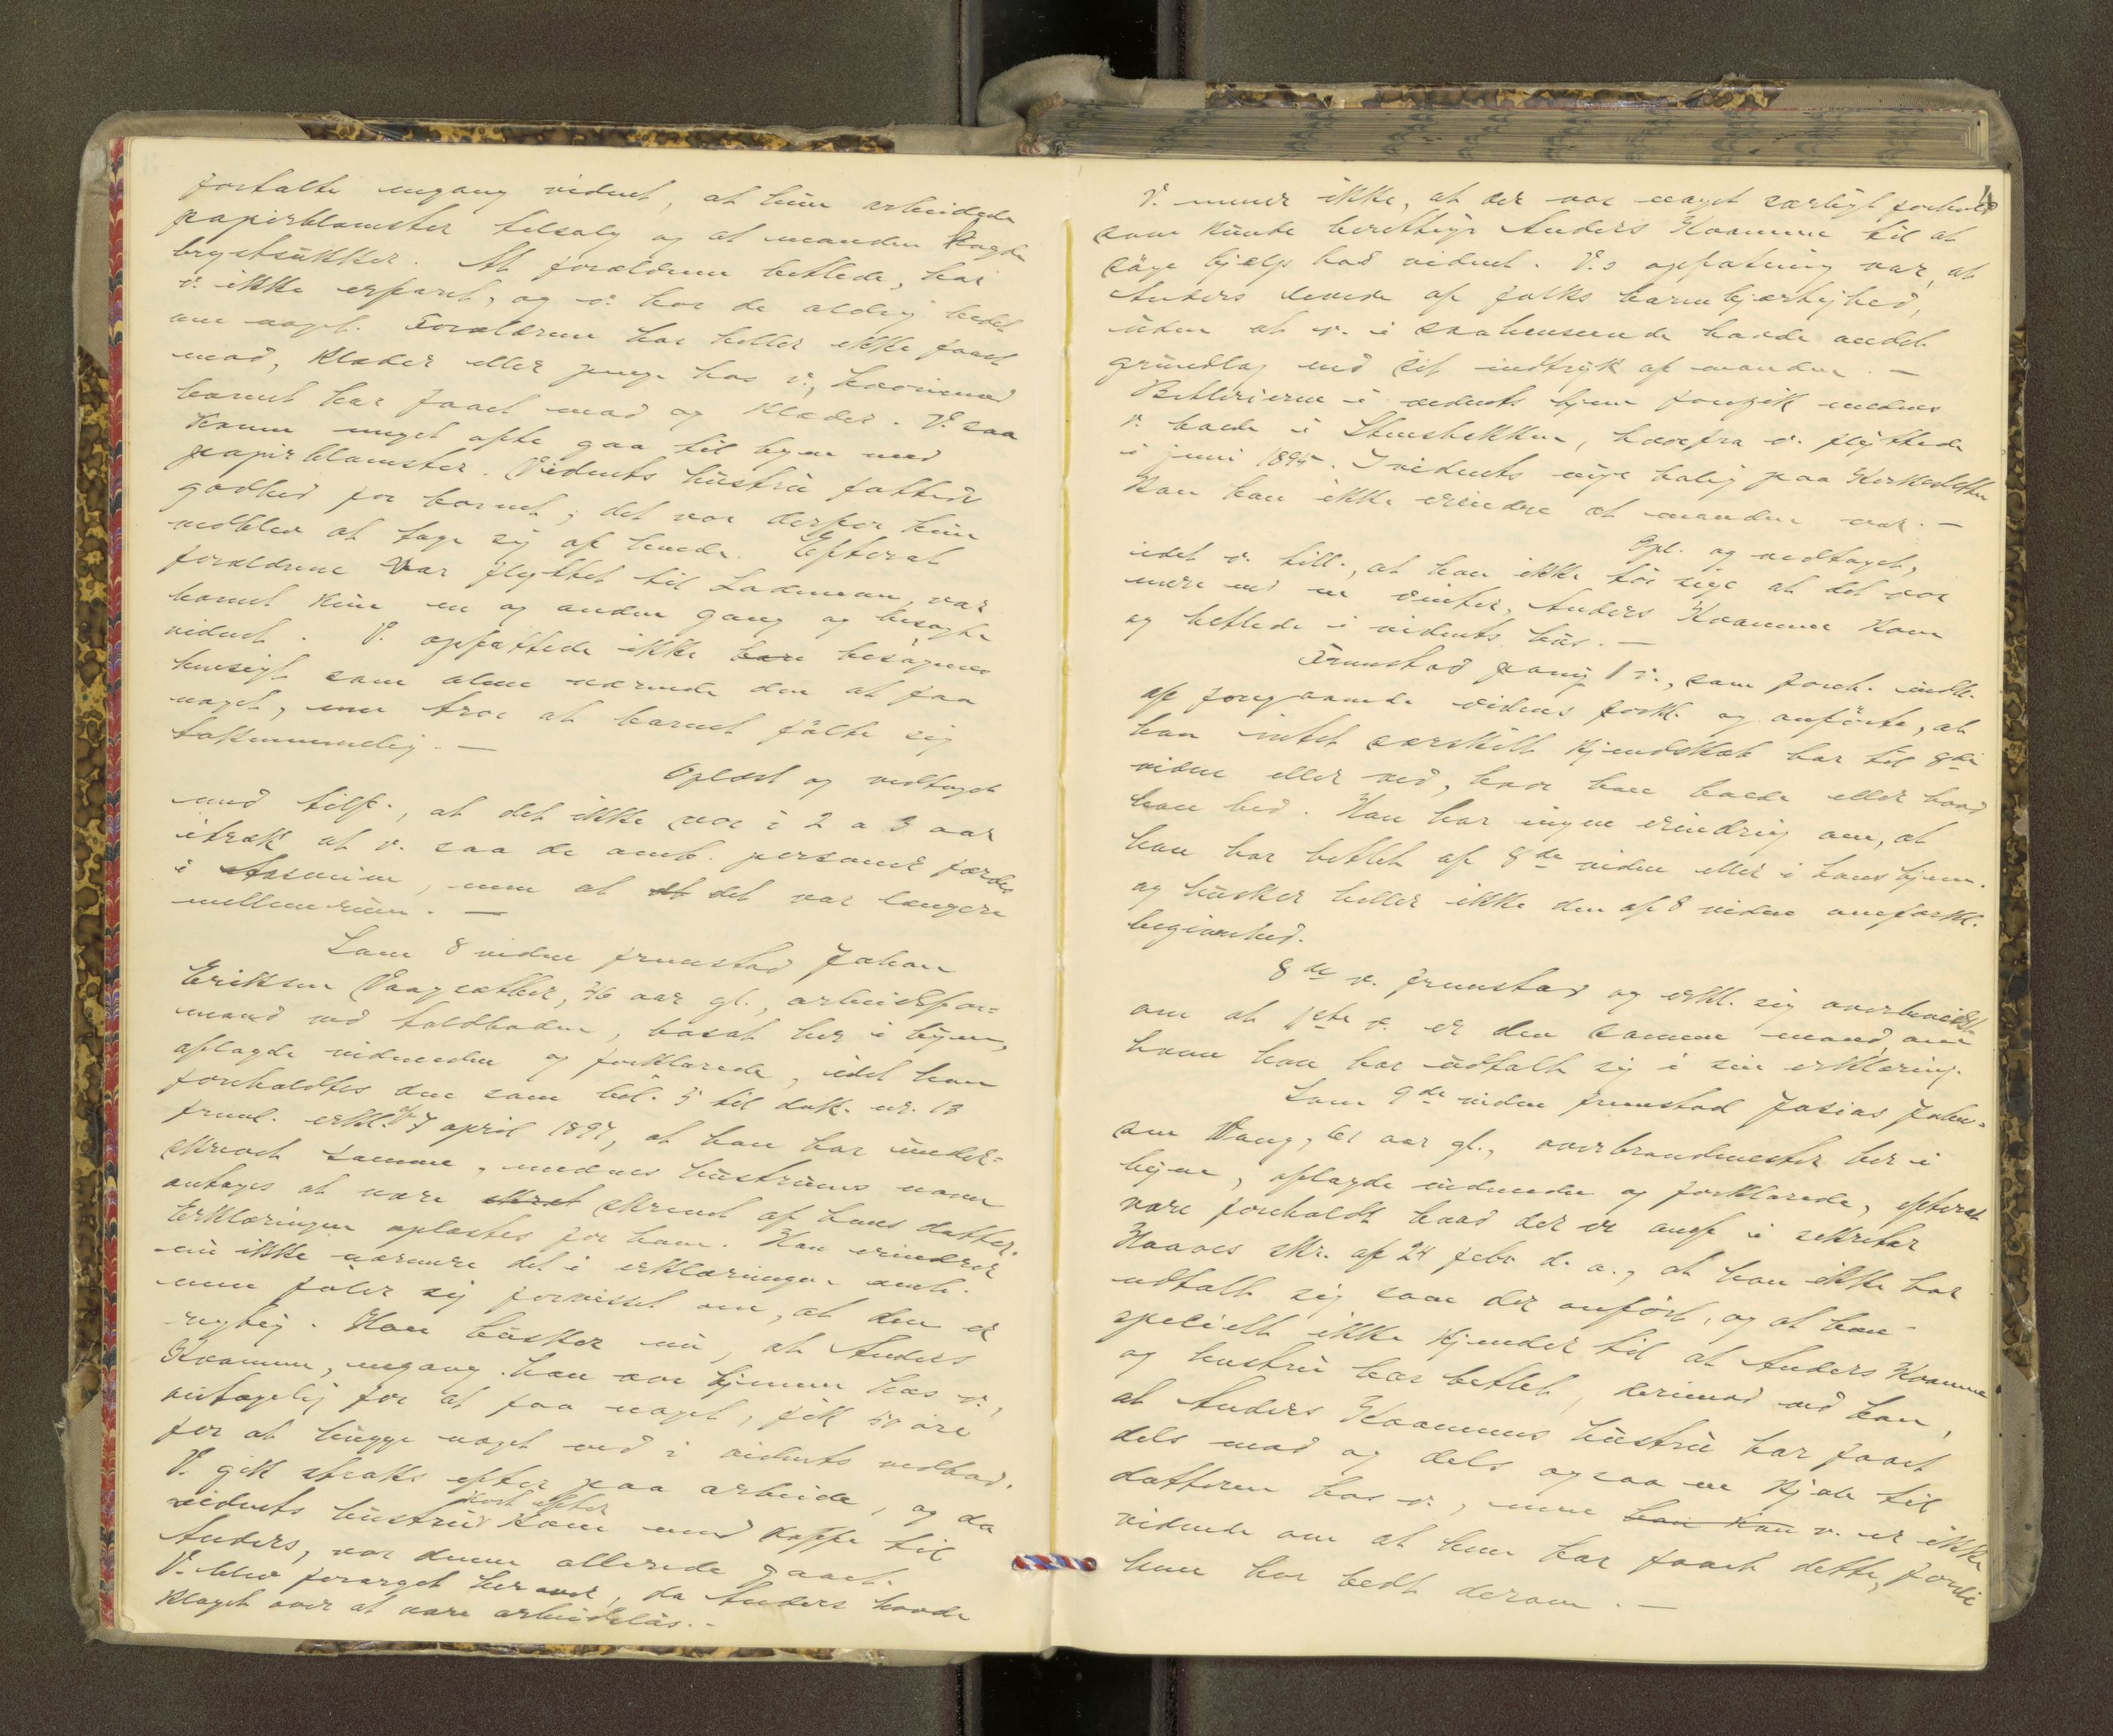 fortalte engang vidnet, at hun arbeidede
papirblomster tilsalg og at manden kogte
brystsukker. At forældrene betlede, har
v. ikke erfaret, og v. har de aldrig bedet
om noget. Forældrene har heller ikke faaet
mad, klæder eller penge hos v., hvorimod
barnet har faaet mad og klæder. V. saa
konen meget ofte gaa til byen med
papirblomster. Vidnets hustru fattede
godhed for barnet; det var derfor hun
vedblev at tage sig af hende. Efterat
forældrene var flyttet til Lademoen, var
barnet kun en og anden gang og besøgte
vidnet. V. opfattede ikke besøgenes
hensigt som alene værende den at faa
noget, men tror at barnet følte sig
taknemmelig. —
Oplæst og vedtaget
med tilf., at det ikke var i 2 a 3 aar
itræk at v. saa de omh. personer færdes
i , men at det var længere
mellemrum. —
Som 8 vidne fremstod Johan
Eriksen Vaagsæther, 46 aar gl., arbeidsfor=
mand ved toldboden, bosat her i byen,
aflagde vidneeden og forklarede, idet han
foreholdtes den som bil. 5 til dok. nr. 13
freml. erkl. af 7 april 1897, at han har under=
skrevet samme, medens hustruens navn
antages at være skrevet af hans datter.
Erklæringen oplæstes for ham. Han erindrer
nu ikke nærmere det i erklæringen omh.
men føler sig forvisset om, at den er
rigtig. Han husker nu, at Anders
Kvamme, engang han var hjemme hos v.,
antagelig for at faa noget, fik 50 øre
for at hugge noget ved i vidnets vedbod.
V. gik straks efter paa arbeide, og da
vidnets hustru kort efter kom med kaffe til
Anders, var denne allerede gaaet.
V. blev forarget herover, da Anders havde
klaget over at være arbeidsløs. -
4
V. mener ikke, at der var noget særligt forhold
som kunde berettige Anders Kvamme til at
søge hjælp hos vidnet. V.s opfatning var, at
Anders levede af folks barmhjertighed,
uden at v. i saahenseende havde andet
grundlag end sit indtryk af manden. —
Betlerierne i vidnets hjem foregik medens
v. boede i Stensbekken, hvorfra v. flyttede
i juni 1895. I vidnets nye bolig paa Kirkesletten
kan han ikke erindre at manden var. —
Opl. og vedtaget,
idet v. till., at han ikke tør sige at det var
mere end en vinter, Anders Kvamme kom
og betlede i vidnets hus. —
Fremstod paany 1 v., som foreh. indh.
af foregaaende vidnes forkl. og anførte, at
han intet særskilt kjendskab har til 8de
vidne eller ved, hvor han boede eller hvad
han hed. Han har ingen erindring om, at
han har betlet af 8de vidne eller i hans hjem.
og husker heller ikke den af 8 vidne omforkl.
begivenhed.
8de v. fremstod og erkl. sig overbevist
om at 1ste v. er den samme mand, om
hvem han har udtalt sig i sin erklæring.
Som 9de vidne fremstod Josias John=
sen Vang, 61 aar gl., overbrandmester her i
byen, aflagde vidneeden og forklarede, efterat
være foreholdt hvad der er anf. i sekretær
Haaves skr. af 24 febr. d. a., at han ikke har
udtalt sig som der anført, og at han
specielt ikke kjender til at Anders Kvamme
og hustru har betlet, derimod ved han,
at Anders Kvammes hustru har faaet
dels mad og dels ogsaa en kjole til
datteren hos v., men han kan v. er ikke
vidende om at hun har faaet dette, fordi
hun har bedt derom. —